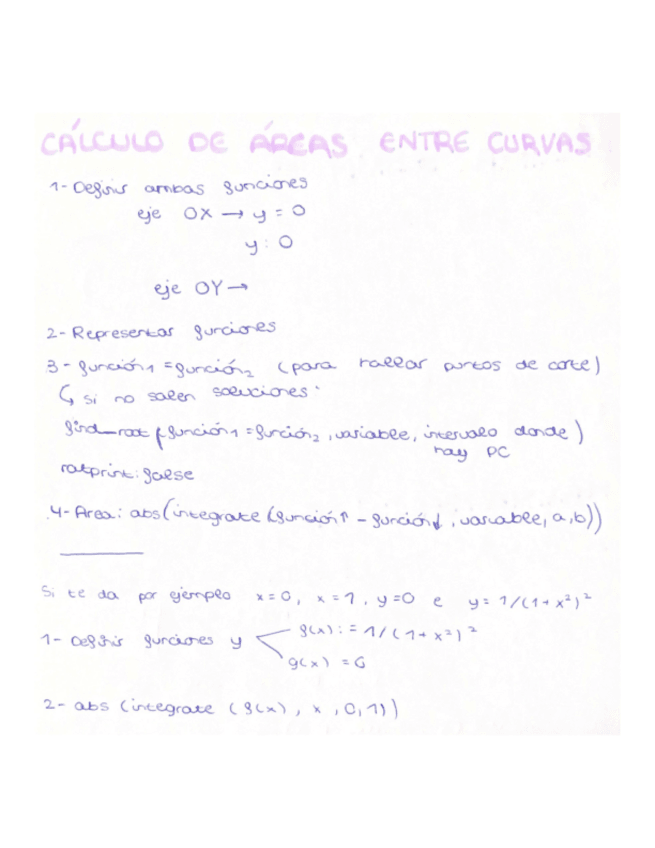 CÁLCULO DE ÁREAS ENTRE CURVAS
1- Definir ambas funciones
eje OX → y = 0
y : 0
eje OY →
2- Representar funciones
3- función₁ = función₂ (para hallar puntos de corte)
↳ si no salen soluciones:
find_root (función₁ = función₂, variable, intervalo donde)
hay PC
ratprint: false
4- Area: abs(integrate (función↑ - función↓, variable, a, b))
Si te da por ejemplo x = 0, x = 1, y = 0 e y = 1/(1+x²)²
1- Definir funciones y f(x) := 1/(1+x²)²
g(x) = 0
2- abs (integrate (f(x), x, 0, 1))